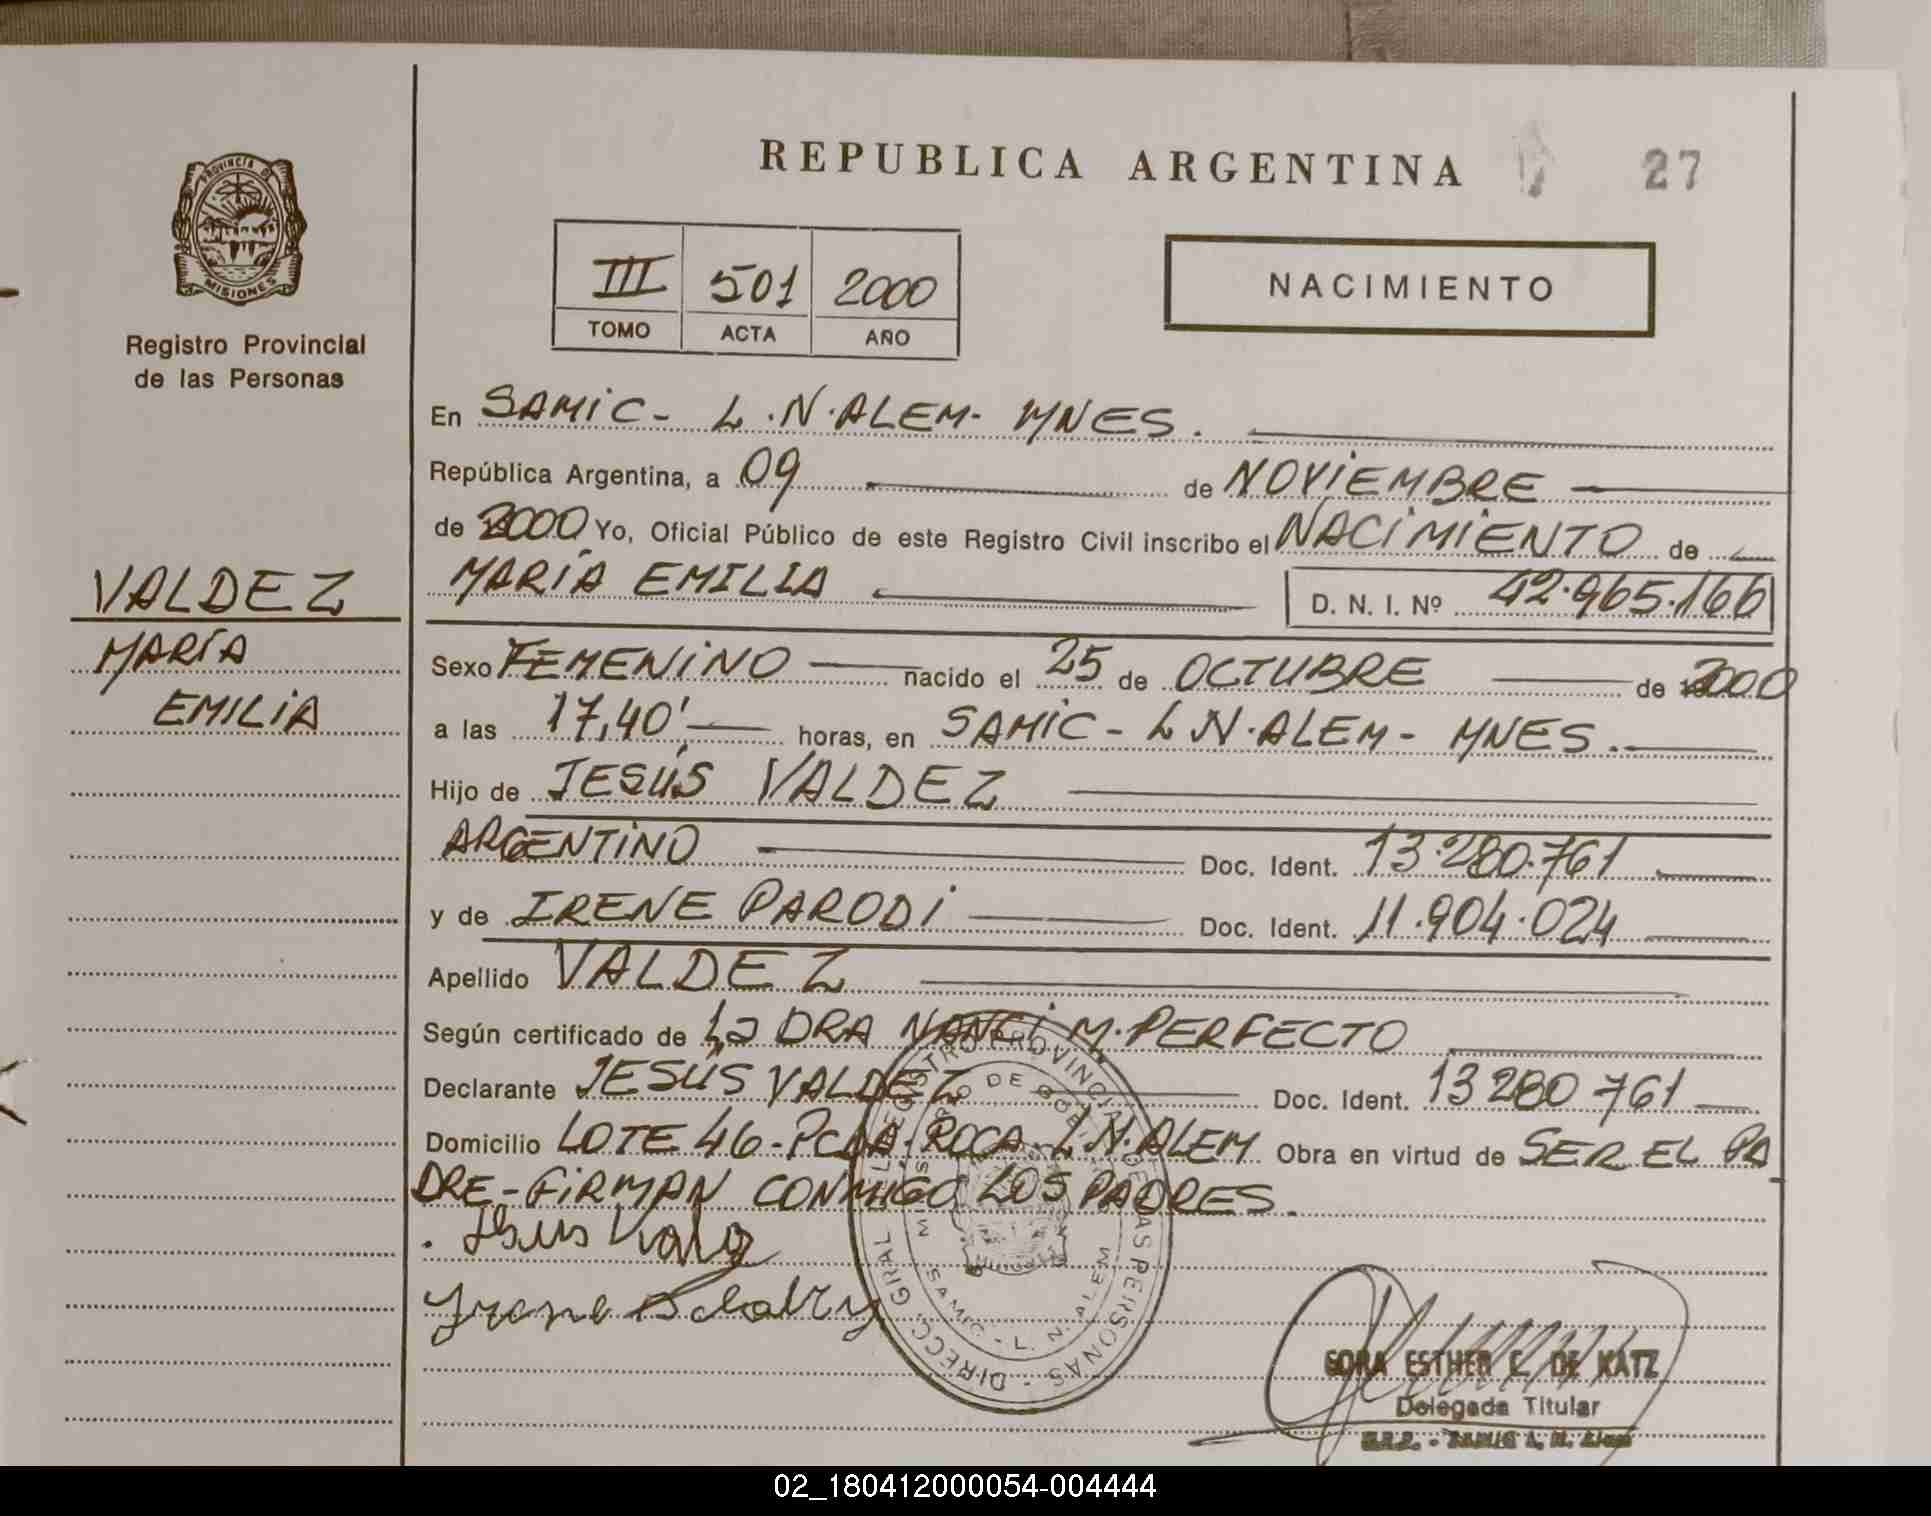 REPUBLICA ARGENTINA 27
PROVINCIA DE
MISIONES
Registro Provincial
de las Personas
III 501 2000
TOMO ACTA AÑO
NACIMIENTO
En SAMIC - L.N. ALEM - MNES.
República Argentina, a 09 de NOVIEMBRE
de 2000 Yo, Oficial Público de este Registro Civil inscribo el NACIMIENTO de
VALDEZ
MARÍA
EMILIA
MARÍA EMILIA D. N. I. Nº 42.965.166
Sexo FEMENINO nacido el 25 de OCTUBRE de 2000
a las 17,40' horas, en SAMIC - L N. ALEM - MNES.
Hijo de JESÚS VALDEZ
ARGENTINO Doc. Ident. 13.280.761
y de IRENE PARODI Doc. Ident. 11.904.024
Apellido VALDEZ
Según certificado de La DRA NANCI M. PERFECTO
Declarante JESÚS VALDEZ Doc. Ident. 13 280 761
Domicilio LOTE 46 - PCIA. ROCA. L.N. ALEM Obra en virtud de SER EL PA
DRE - FIRMAN CONMIGO LOS PADRES.
DIRECC. GRAL. REGISTRO PROVINCIAL DE LAS PERSONAS
SAMIC - L. N. ALEM
Jesus
Irene
ESTHER DE KATZ
Delegada Titular
02_180412000054-004444